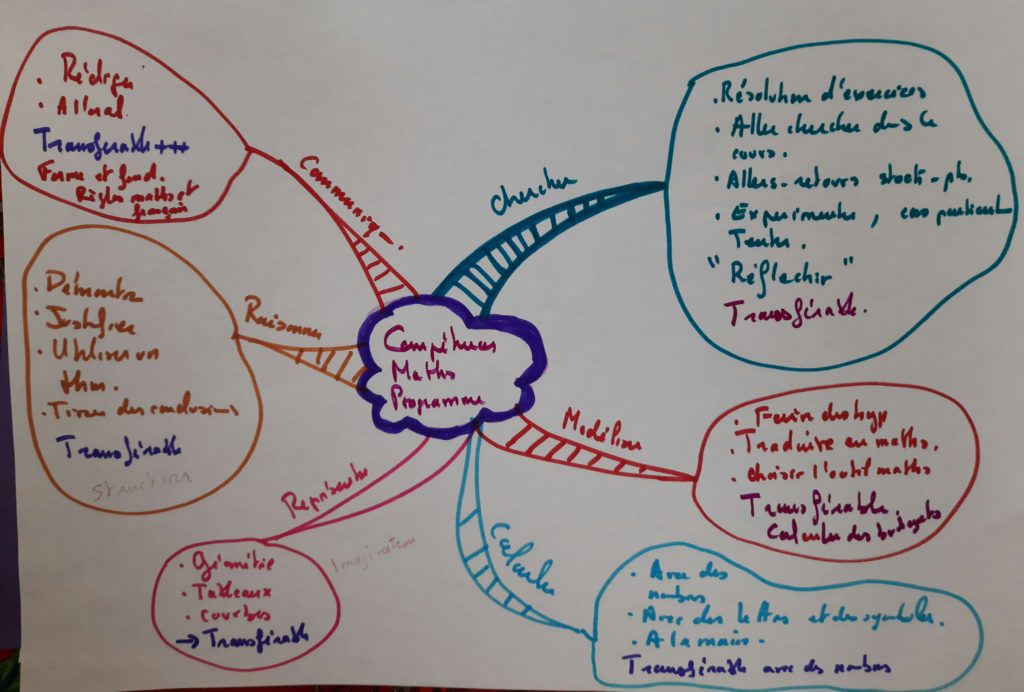 Compétences
Maths
Programme
Communiquer
• Rédiger
• A l'oral
Transférable +++
Forme et fond.
Règles maths et
français
Chercher
• Résolution d'exercices
• Aller chercher dans le
cours.
• Allers-retours
• Expérimenter, cas particuliers
Tenter.
"Réfléchir"
Transférable.
Raisonner
• Démontrer
• Justifier
• Utiliser un
thm.
• Tirer des conclusions
Transférable
Modéliser
• Faire des hyp
• Traduire en maths.
• Choisir l'outil maths
Transférable
Calculer des budgets
Représenter
• Géométrie
• Tableaux
• Courbes
→ Transférable
Imagination
Calculer
• Avec des
nombres
• Avec des lettres et des symboles.
• A la main -
Transférable avec des nombres